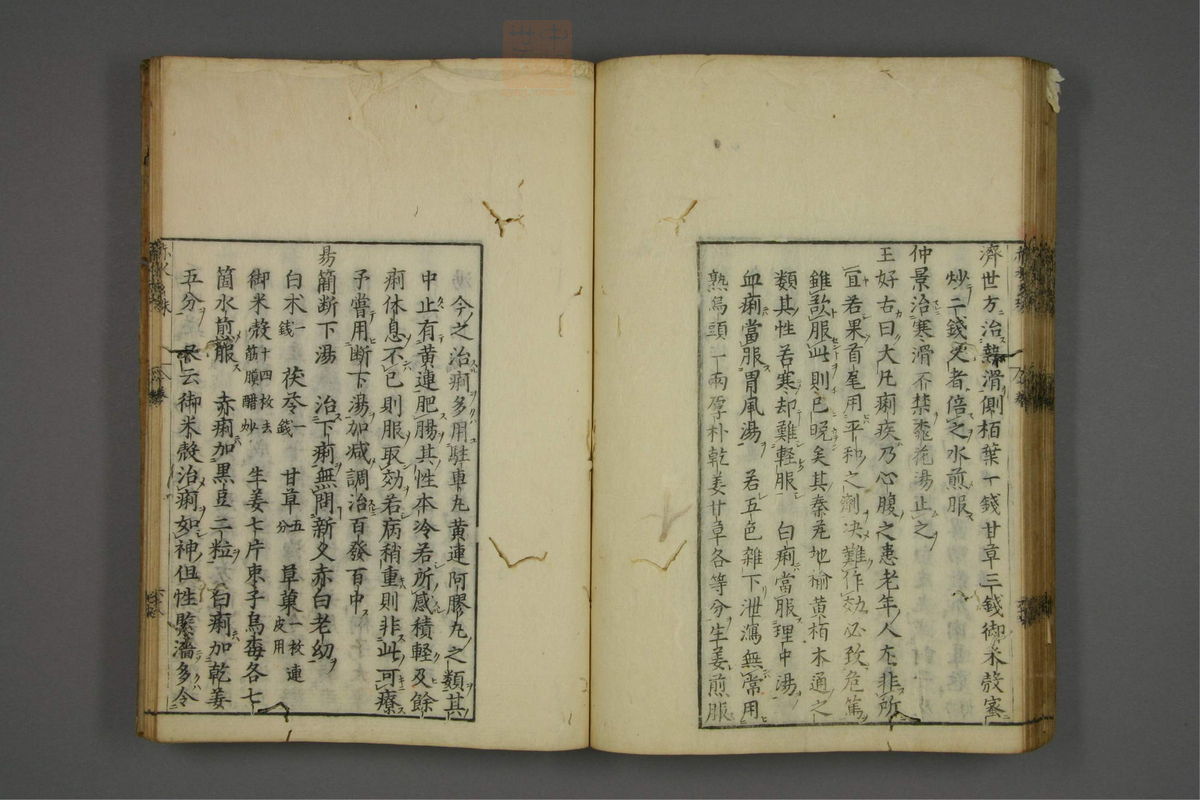 濟世方治熱滑側栢葉一錢甘草三錢御米殼蜜
炒二錢乆者倍之水煎服
仲景治寒滑不禁桃花湯止之
王好古曰大凡痢疾乃心腹之患老年人尤非所
宜若果首尾用平和之劑決難作効必致危篤
雖欲服此則已晚矣其秦艽地榆黄栢木通之
類其性若寒却難軽服 白痢當服理中湯
血痢當服胃風湯 若五色雜下泄瀉無常用
熟烏頭一兩厚朴乾姜甘草各等分生姜煎服
今之治痢多用駐車丸黄連阿膠丸之類其
中止有黄連肥腸其性本冷若所感積軽及餘
痢休息不已則服取効若病稍重則非此可療
予嘗用断下湯加减調治百發百中
易簡断下湯 治下痢無問新乆赤白老幼
白术一錢 茯苓一錢 甘草五分 草菓一枚連皮用
御米殼十四枚去筋膜醋炒 生姜七片枣子烏梅各七
箇水煎服 赤痢加黒豆二粒 白痢加乾姜
五分 云御米殼治痢如神但性緊濇多令